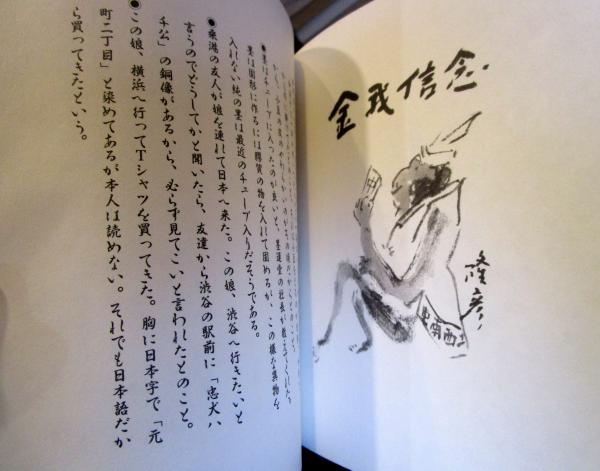 金我信念
隆彦
東南西
●墨はチューブに入ったのが良いと、墨運堂の社長が教えてくれた。
墨は固形に作るには膠質の物を入れて固めるが、この様な異物を
入れない純の墨は最近のチューブ入りだそうである。
●東港の友人が娘を連れて日本へ来た。この娘、渋谷へ行きたいと
言うのでどうしてかと聞いたら、友達から渋谷の駅前に「忠犬ハ
チ公」の銅像があるから、必らず見てこいと言われたとのこと。
●この娘、横浜へ行ってTシャツを買ってきた。胸に日本字で「元
町二丁目」と染めてあるが本人は読めない。それでも日本語だか
ら買ってきたという。